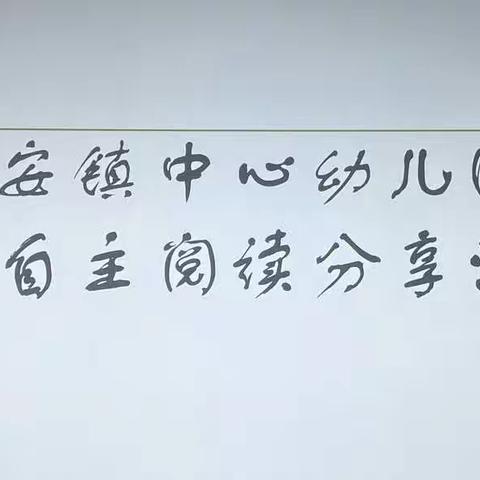 安镇中心幼儿
自主阅读分享